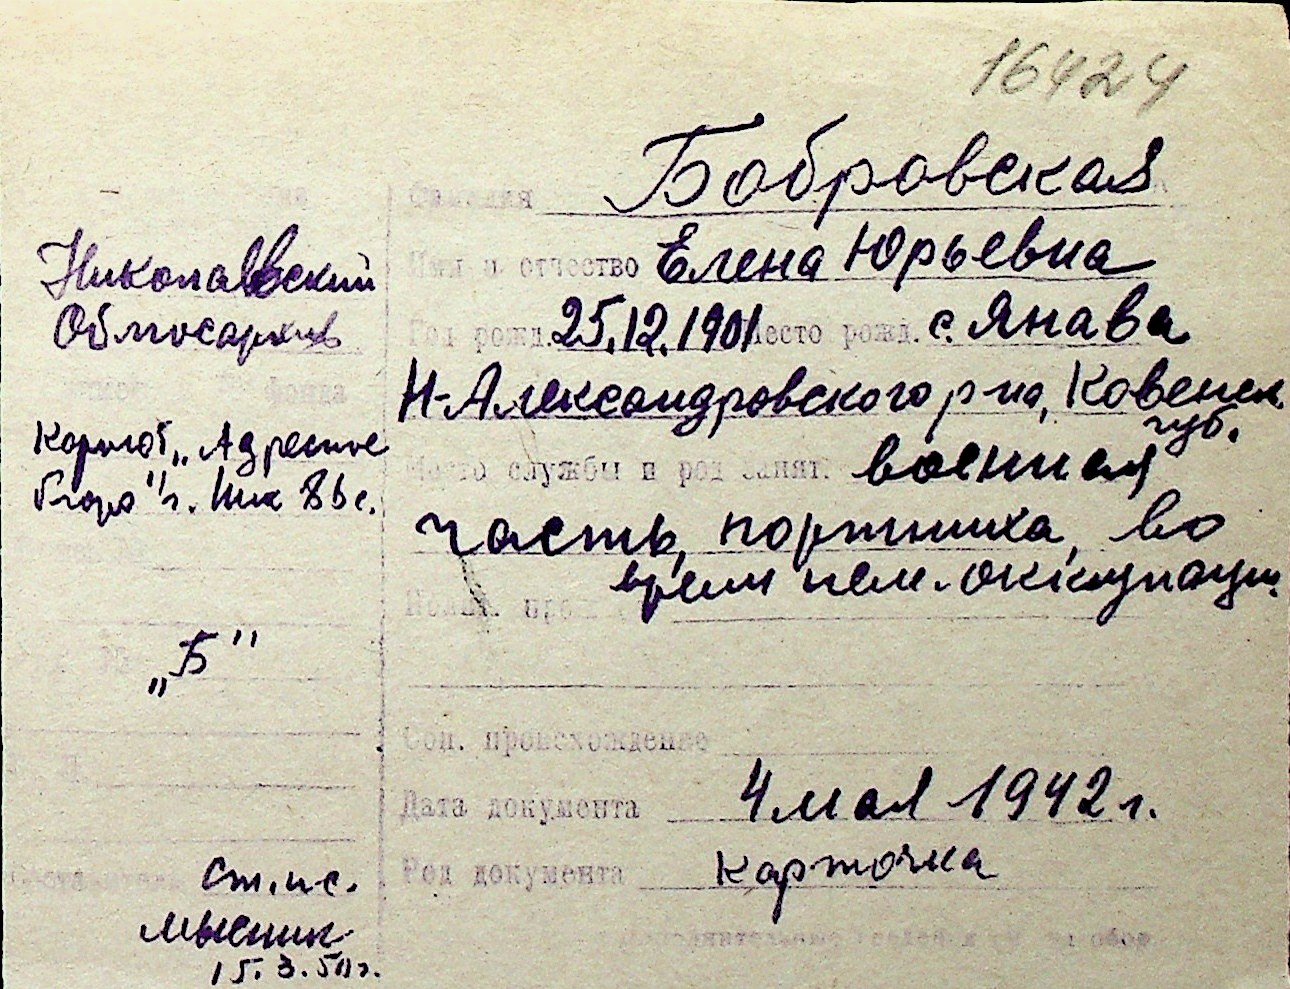 16424
Фамилия Бобровская
Имя и отчество Елена Юрьевна
Год рожд. 25.12.1901 Место рожд. с. Янава
Н-Александровского р-на, Ковенск.
губ.
Место службы и род занят. военная
часть, портниха, во
время нем. оккупации.
Соц. происхождение
Дата документа 4 мая 1942 г.
Род документа Карточка
Николаевский
Облгосархив
фонда
Картот. „Адресное
бюро" г. Ник
„Б"
Ст. н. с.
Мысник
15.3.50 г.